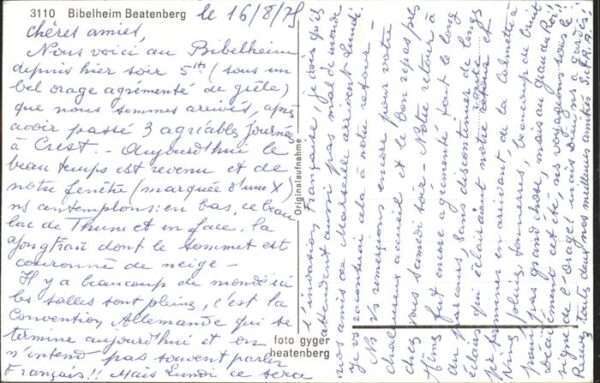 3110 Bibelheim Beatenberg
le 16/8/75
chères amies,
Nous voici au Bibelheim
depuis hier soir 5h (sous un
bel orage agrémenté de grêle)
que nous sommes arrivés, après
avoir passé 3 agréables journées
à Crest. - Aujourd'hui le
beau temps est revenu et de
notre fenêtre (marquée d'une X)
ns contemplons: en bas, ce beau
lac de Thun et en face, la
Jungfrau dont le sommet est
couronné de neige -
Il y a beaucoup de monde ici
les salles sont pleines, c'est la
Convention Allemande qui se
termine aujourd'hui et on
n'entend pas souvent parler
Français!! Mais Lundi ce sera
Originalaufnahme
foto gyger
beatenberg
l'invasion Française, je crois qu'ils
attendent aussi pas mal de monde
nos amis de Marseille arrivent Lundi.
je vs raconterai cela à notre retour -
Ns vs remercions encore pour votre
chaleureux accueil et le bon repas pris
chez vous samedi soir - Notre retour à
fut encore agrémenté tout le long
du parcours, sans discontinuer de longs
éclairs qui éclairaient notre
en arrivant, de la
pluie, tonnerre, beaucoup de bruit
pour pas grand chose, mais au grand
décidément cet été, ns voyageons sous le
signe de l'Orage! mais
Recevez toutes deux nos meilleures amitiés